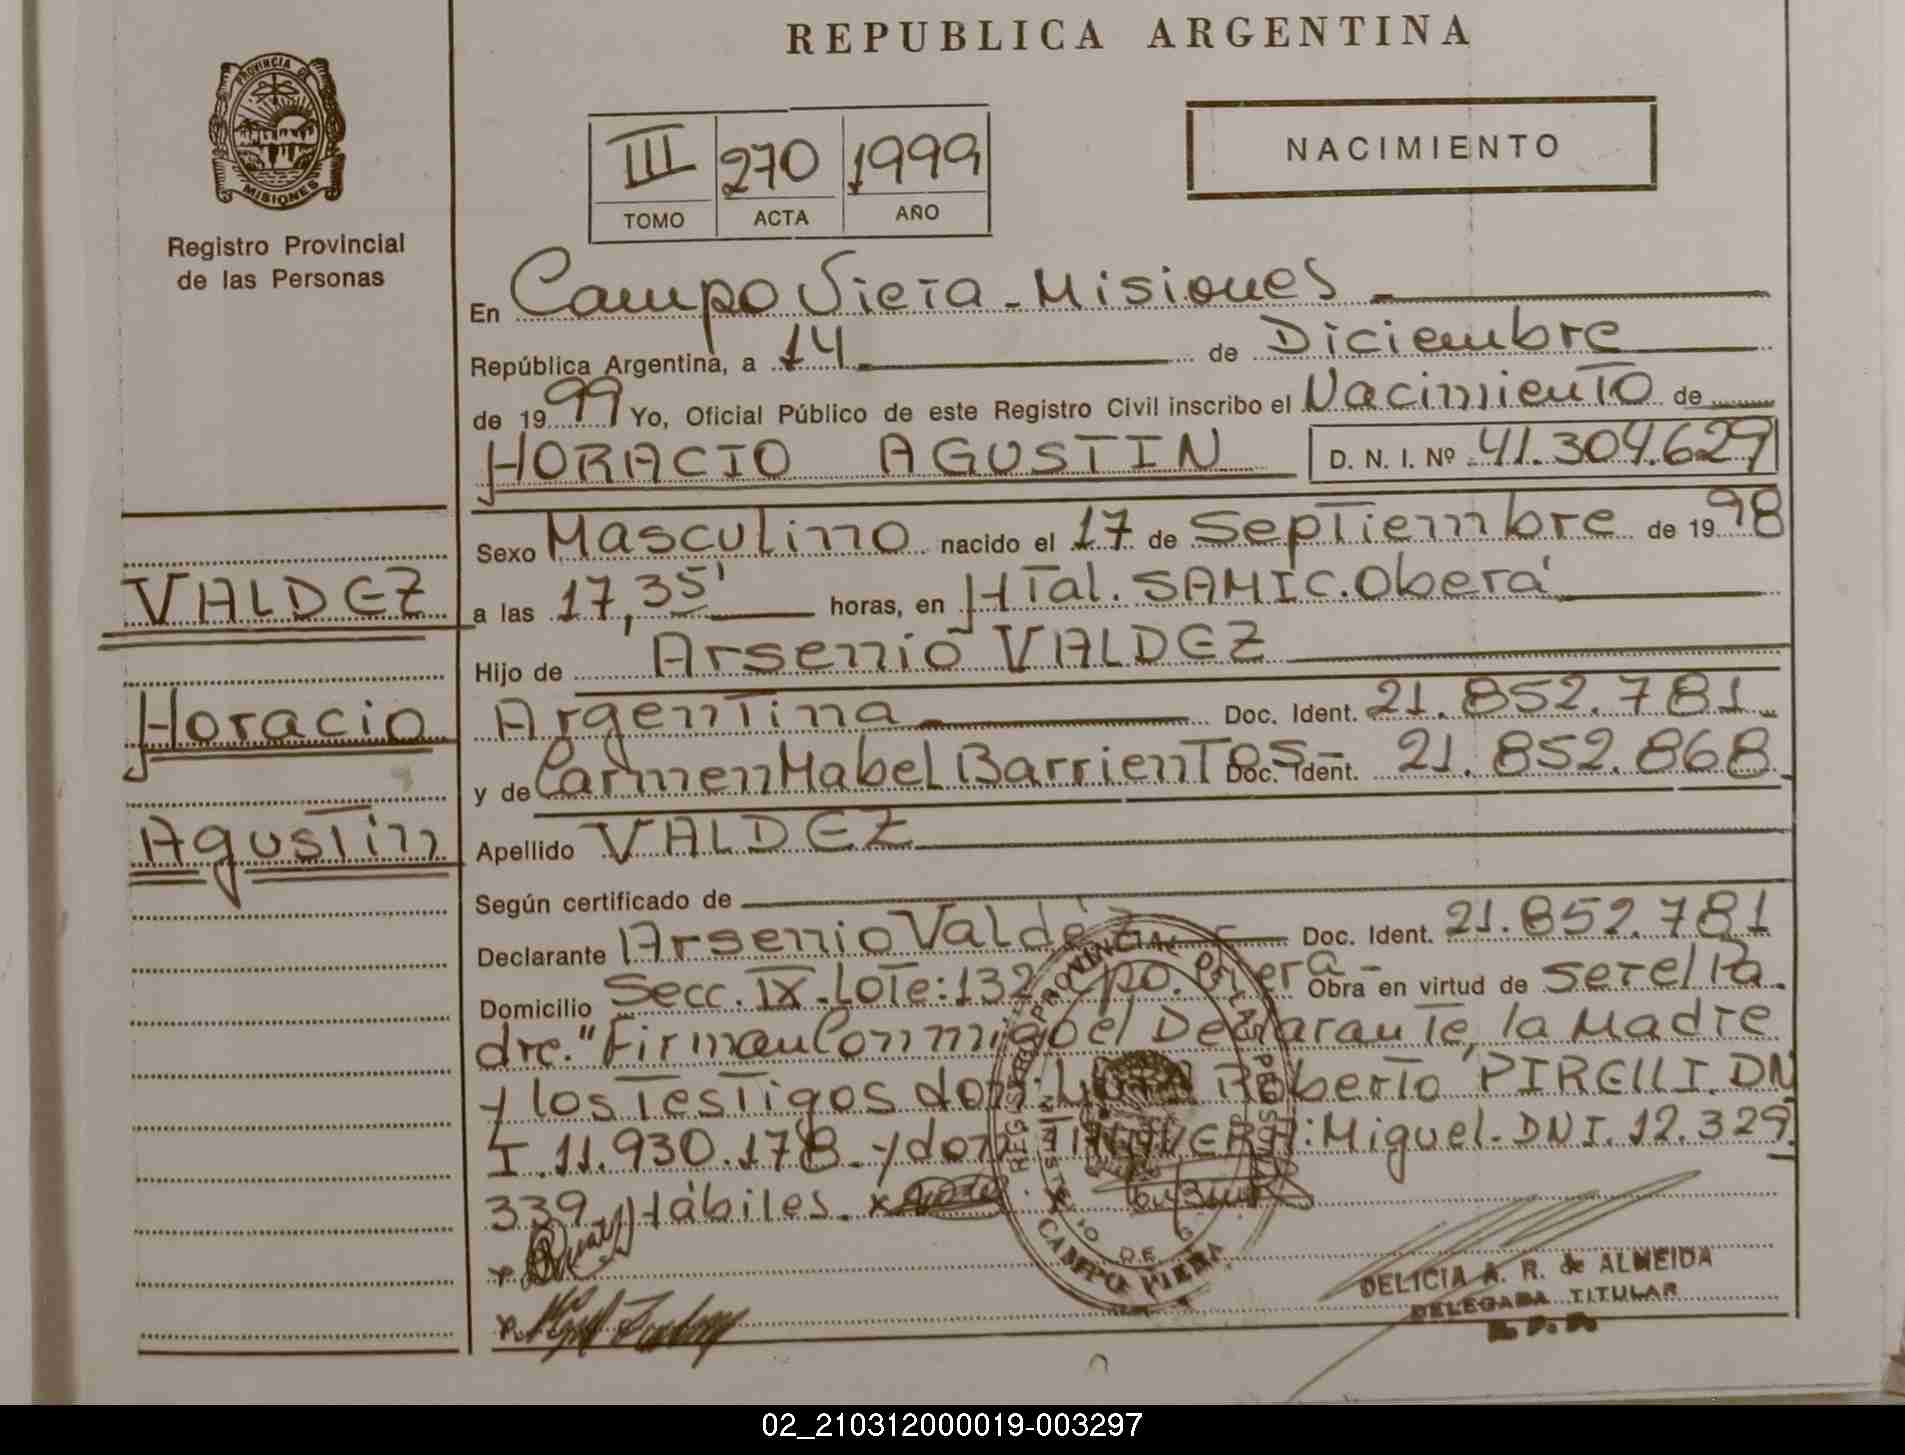 REPUBLICA ARGENTINA
PROVINCIA DE MISIONES
Registro Provincial
de las Personas
III 270 1999
TOMO ACTA AÑO
NACIMIENTO
En Campo Viera - Misiones
República Argentina, a 14 de Diciembre
de 1999 Yo, Oficial Público de este Registro Civil inscribo el Nacimiento de
HORACIO AGUSTIN D. N. I. Nº 41.304.629
Sexo Masculino nacido el 17 de Septiembre de 1998
a las 17,35' horas, en HTal. SAMIC. Oberá
Hijo de Arsenio VALDEZ
Argentina Doc. Ident. 21.852.781
y de Carmen Mabel Barrientos - Doc. Ident. 21.852.868
Apellido VALDEZ
Según certificado de
Declarante Arsenio Valdéz Doc. Ident. 21.852.781
Domicilio Secc. IX. Lote: 132 Cpo. Viera - Obra en virtud de ser el Pa
dre." Firman Conmigo el Declarante, la Madre
y los Testigos don: Roberto PIRELLI. DN
I. 11.930.178 - y don Miguel - DNI. 12.329.
339 Hábiles.
VALDEZ
Horacio
Agustin
REGISTRO PROVINCIAL DE LAS PERSONAS
MINISTERIO DE G
CAMPO VIERA
DELICIA A. R. de ALMEIDA
DELEGADA TITULAR
R. P. P.
02_210312000019-003297